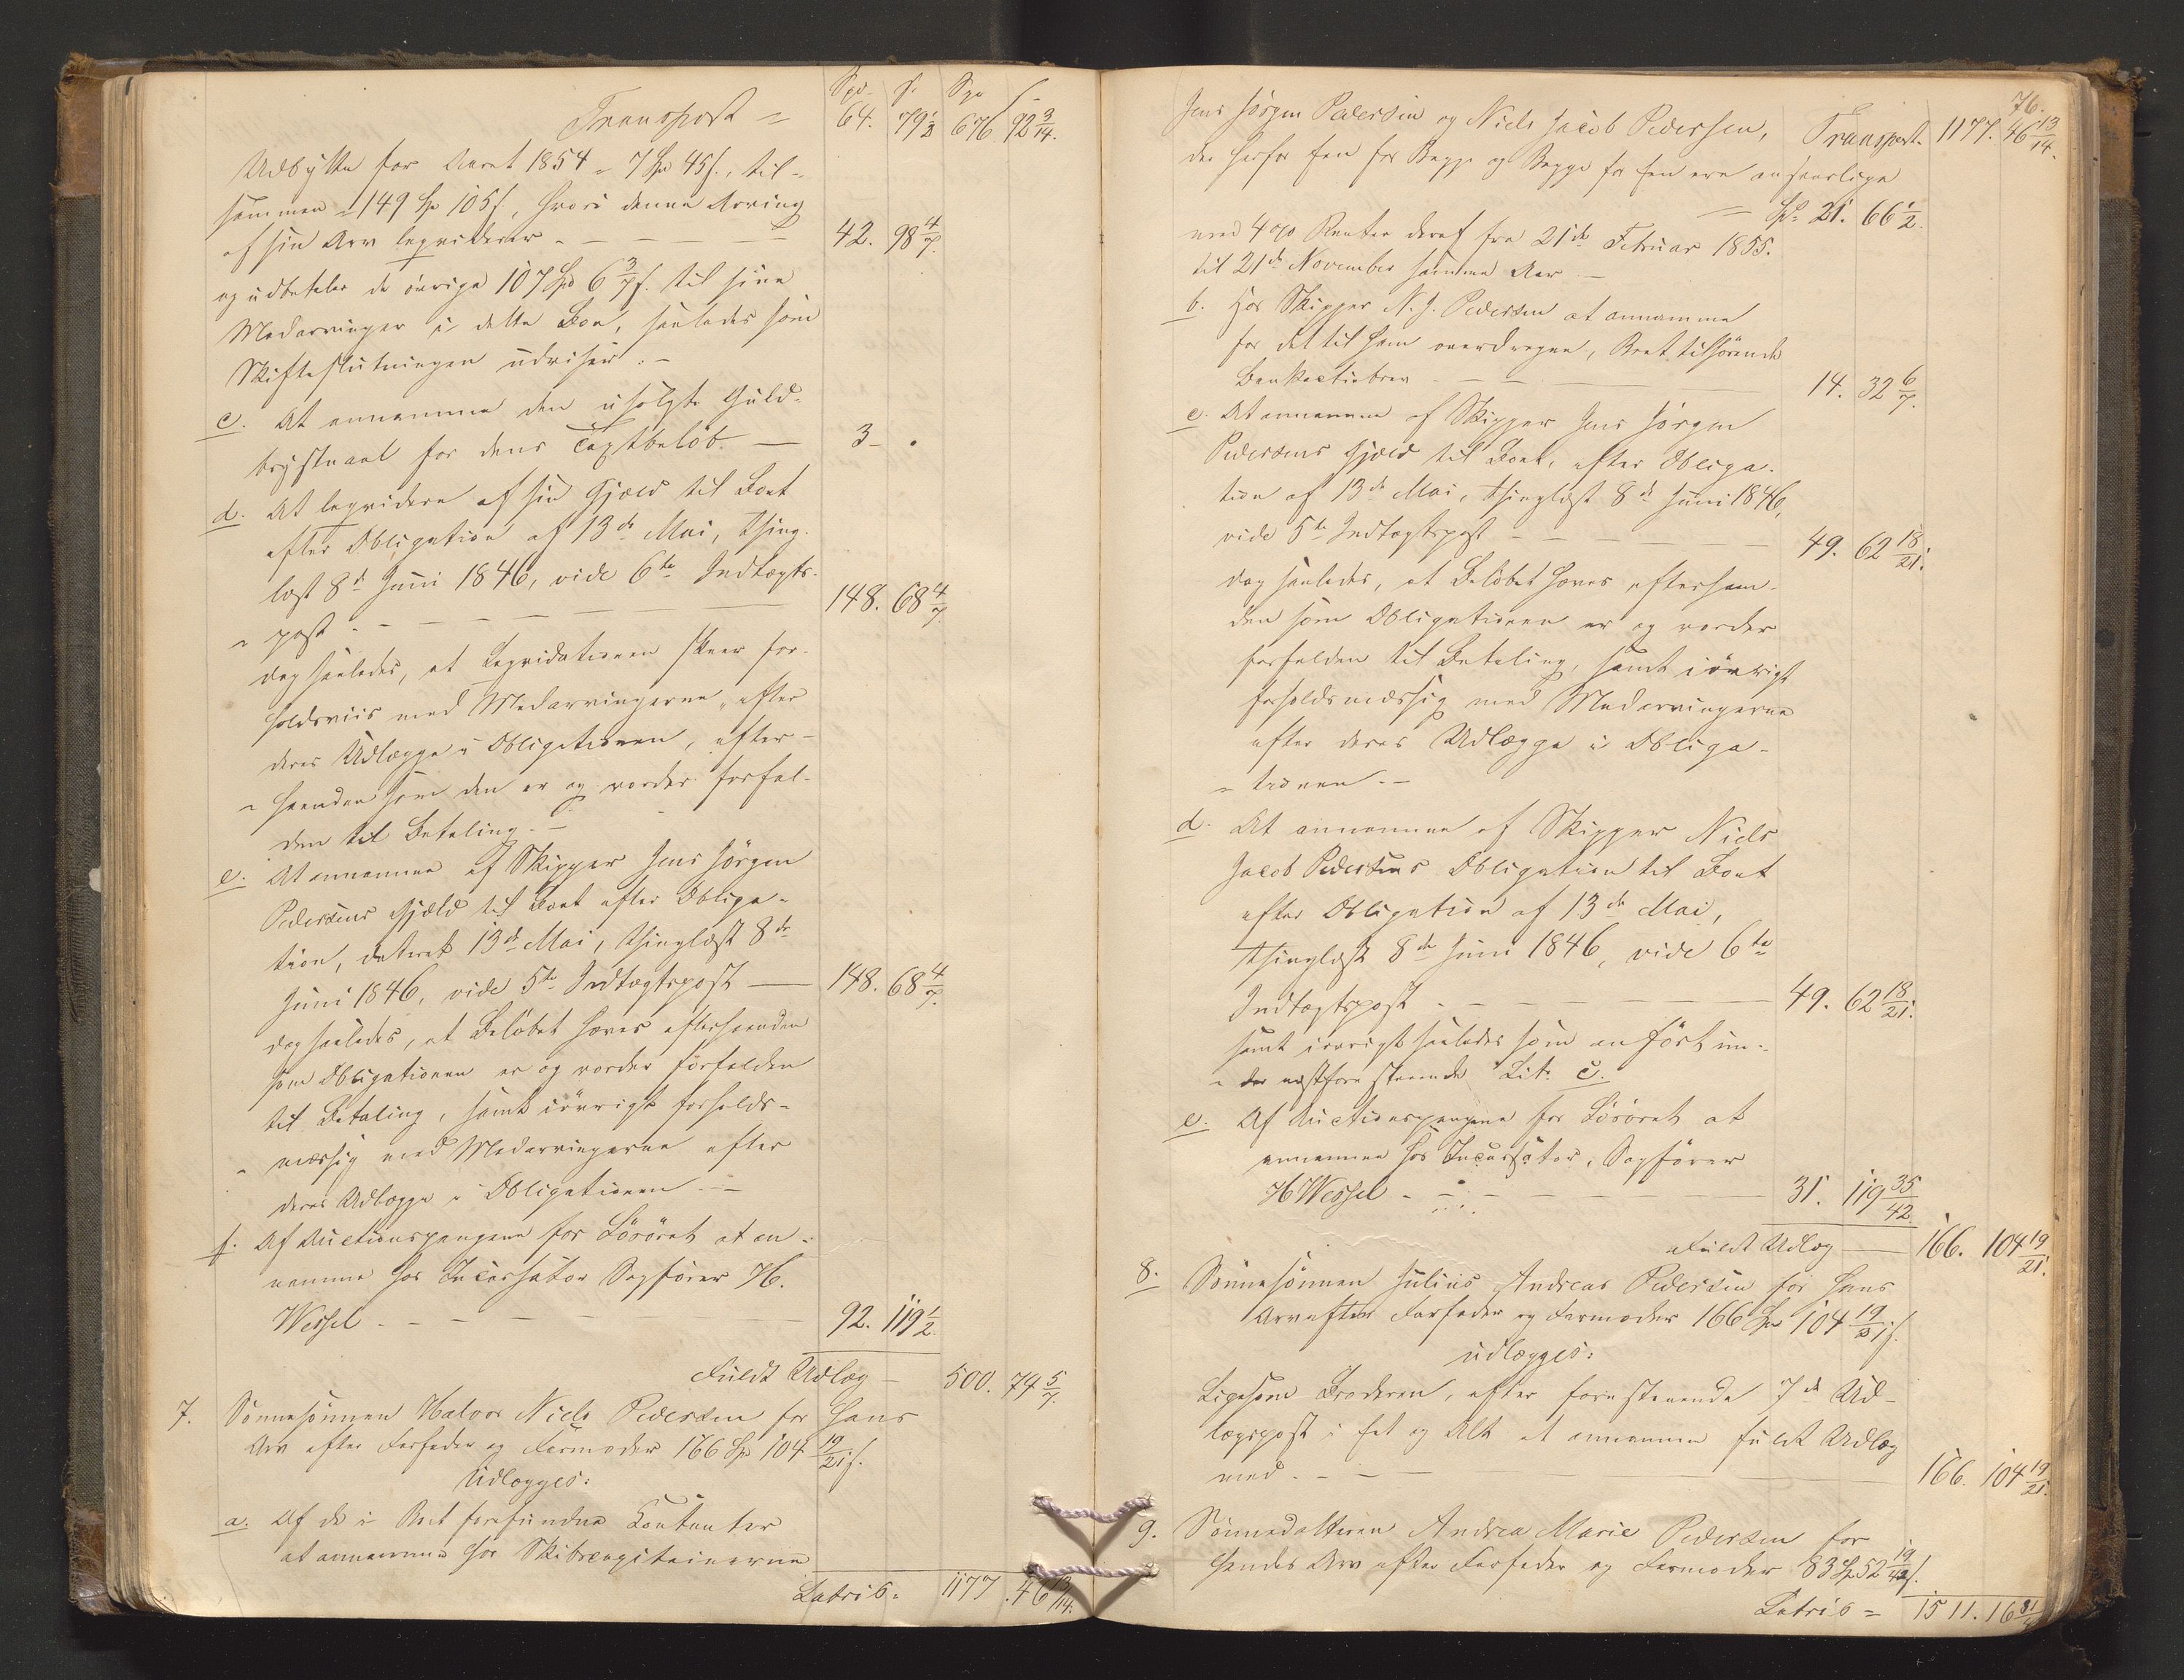 Spd. ſ. Spd ſ.
Transport = 64. 79 1/2 676 92 3/14.
Udbytte for Aaret 1854 = 7 Spd 45 ſ., til-
sammen = 149 Sp 105 ſ, hvori denne Arving
af sin Arv liqviderer - - - - 42. 98 4/7.
og udbetaler de øvrige 107 Spd 6 3/7 ſ. til sine
Medarvinger i dette Boe, saaledes som
Skifteslutningen udviser. -
c. At annamme den usolgte Guld-
brystnaal for dens Taxtbeløb. — 3 - .
d. At liqvidere af sin Gjæld til Boet
efter Obligation af 13de Mai, thing-
læst 8de Juni 1846, vide 6te Indtægts-
- post - - - - 148. 68 4/7.
dog saaledes, at Liqvidationen skeer for-
holdsviis med Medarvingerne, efter
deres Udlægge i Obligationen, efter-
- haanden som den er og vorder forfal-
den til Betaling. -
e. At annamme af Skipper Jens Jørgen
Pedersens Gjæld til Boet efter Obliga-
tion, dateret 13de Mai, thinglæst 8de
Juni 1846, vide 5te Indtægtspost — 148. 68 4/7.
dog saaledes, at Beløbet hæves efterhaanden
som Obligationen er og vorder forfalden
til Betaling, samt iøvrigt forholds-
- mæssig med Medarvingerne efter
deres Udlægge i Obligationen. -
f. Af Auctionspengene for Løsøret at an-
namme hos Incassator Sagfører H.
Wessel - - - - 92. 119 1/2.
Fuldt Udlæg — 500. 74 5/7.
7. Sønnesønnen Halvor Niels Pedersen for hans
Arv efter Farfader og Farmoder 166 Sp 104 19/21 ſ.
Udlægges:
a. Af de i Boet forefundne Contanter
at annamme hos Skibscapitainerne
Latris: 1177. 46 13/14.
76.
Jens Jørgen Pedersen og Niels Jacob Pedersen, Transport. 1177. 46 13/14.
der herfor Een for Begge og Begge for Een ere ansvarlige
= Sp. 21. 66 1/2.
med 4 % Renter deraf fra 21de Februar 1855.
til 21de November samme Aar -
b. Hos Skipper N. J. Pedersen at annamme
for det til ham overdragne, Boet tilhørende
Bankactiebrev - - - 14. 32 6/7.
c. At annamme af Skipper Jens Jørgen
Pedersens Gjæld til Boet, efter Obliga-
tion af 13de Mai, thinglæst 8de Juni 1846,
vide 5te Indtægtspost - - - 49. 62 18/21.
dog saaledes, at Beløbet hæves efterhaan-
den som Obligationen er og vorder
forfalden til Betaling, samt iøvrigt
forholdsmæssig med Medarvingerne
efter deres Udlægge i Obliga-
- tionen. -
d. At annamme af Skipper Niels
Jacob Pedersens Obligation til Boet
efter Obligation af 13de Mai,
thinglæst 8de Juni 1846, vide 6te
Indtægtspost - - - - 49. 62 18/21.
samt iøvrigt saaledes som anført un-
- der næstforestaaende Litr. c.
e. Af Auctionspengene for Løsøret at
annamme hos Incassator, Sagfører
H Wessel - - - - 31. 119 35/42
Fuldt Udlæg — 166. 104 19/21.
8. Sønnesønnen Julius Andreas Pedersen for hans
Arv efter Farfader og Farmoder 166 Sp 104 19/21 ſ.
udlægges:
Ligesom Broderen, efter forestaaende 7de Ud-
lægspost i Eet og Alt at annamme fuldt Udlæg
med - - - 166. 104 19/21.
9. Sønnedatteren Andrea Marie Pedersen for
hendes Arv efter Farfader og Farmoder 83 Sp 52 19/42 ſ.
Latris = 1511. 16 31/